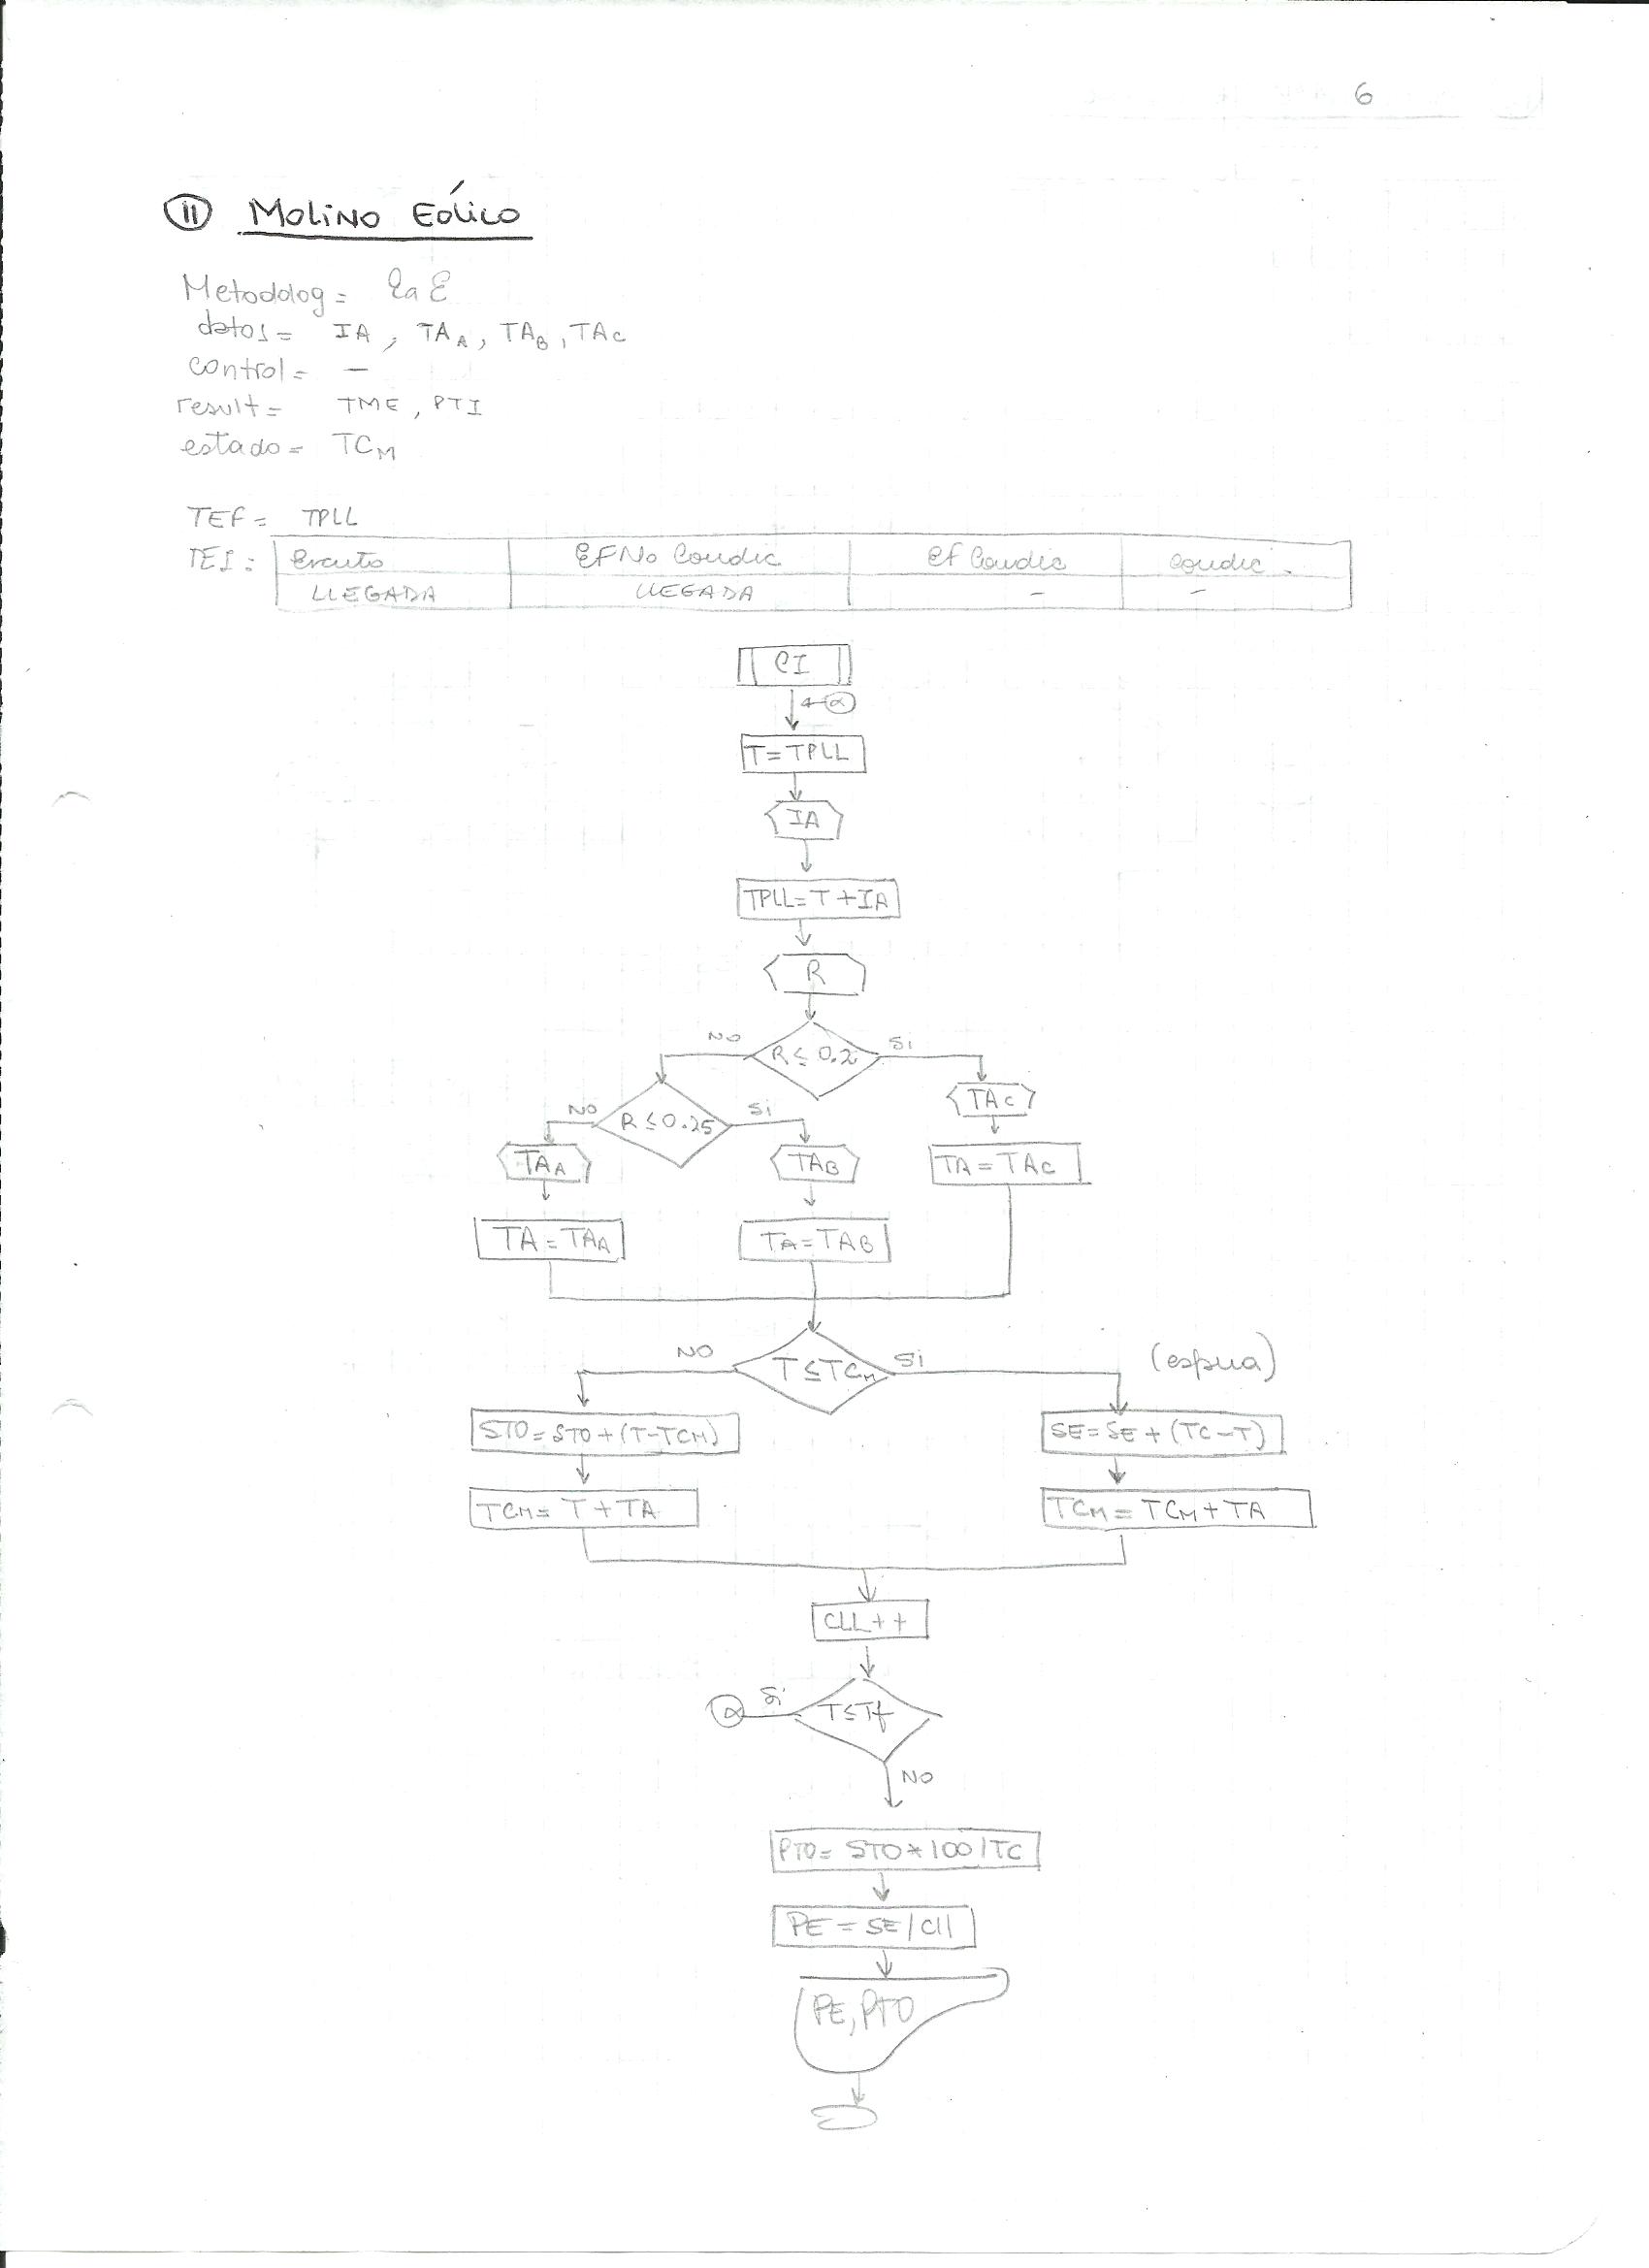 6
11 MOLINO EÓLICO
Metodolog = EaE
datos = IA, TAA, TAB, TAC
control = —
result = TME, PTI
estado = TCM
TEF = TPLL
TEI: Evento EFNo Condic Ef Condic condic.
LLEGADA LLEGADA - -
CI
α
T=TPLL
IA
TPLL=T+IA
R
NO R≤0.2 Si
TAC
NO R≤0.25 Si
TAA TAB TA=TAC
TA=TAA TA=TAB
NO T≤TCM Si (espera)
STO=STO+(T-TCM) SE=SE+(TC-T)
TCM=T+TA TCM=TCM+TA
CLL++
α Si T≤Tf
NO
PTO=STO*100/TC
PE=SE/Cll
PE, PTO